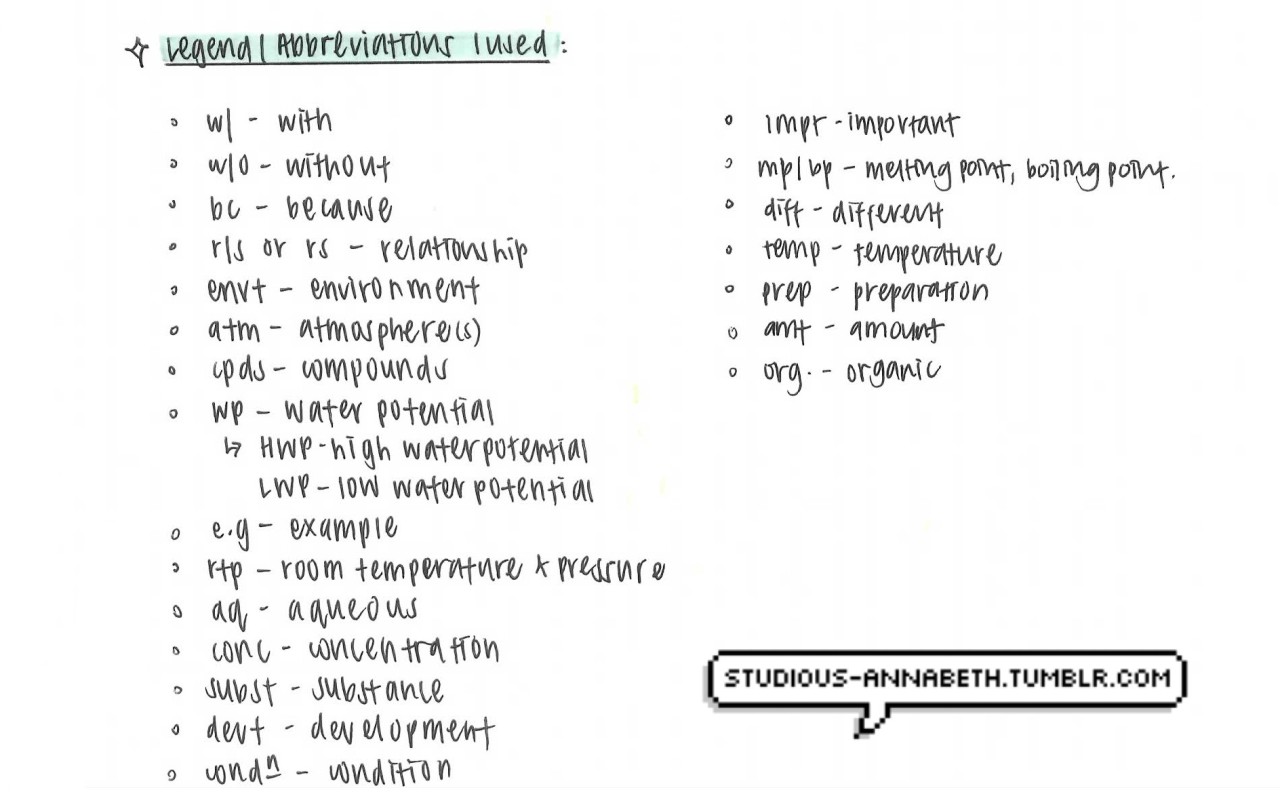 Legend | Abbreviations | used :
w/ - with
w/o - without
bc - because
r/s or rs - relationship
envt - environment
atm - atmosphere(s)
cpds - compounds
wp - water potential
↳ HWP - high water potential
LWP - low water potential
e.g - example
rtp - room temperature & pressure
aq - aqueous
conc - concentration
subst - substance
devt - development
condⁿ - condition
impr - important
mp/bp - melting point, boiling point.
diff - different
temp - temperature
prep - preparation
amt - amount
org. - organic
STUDIOUS-ANNABETH.TUMBLR.COM